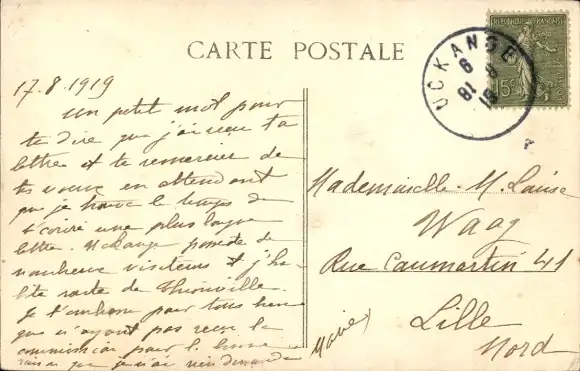 CARTE POSTALE
REPUBLIQUE FRANÇAISE
15c
UCKANGE
17.8.1919
un petit mot pour
te dire que j'ai reçu ta
lettre et te remercier de
tes en attendant
que je trouve le temps de
t'écrire une plus longue
lettre. Uckange possède de
nombreux visiteurs et j'ha-
bite route de Thionville.
Je t'embrasse pour tous
que n'ayant pas reçu la
commission pour la bonne
raison que je n'ai
Marie
Mademoiselle M. Louise
Waag
Rue Caumartin 41
Lille
Nord